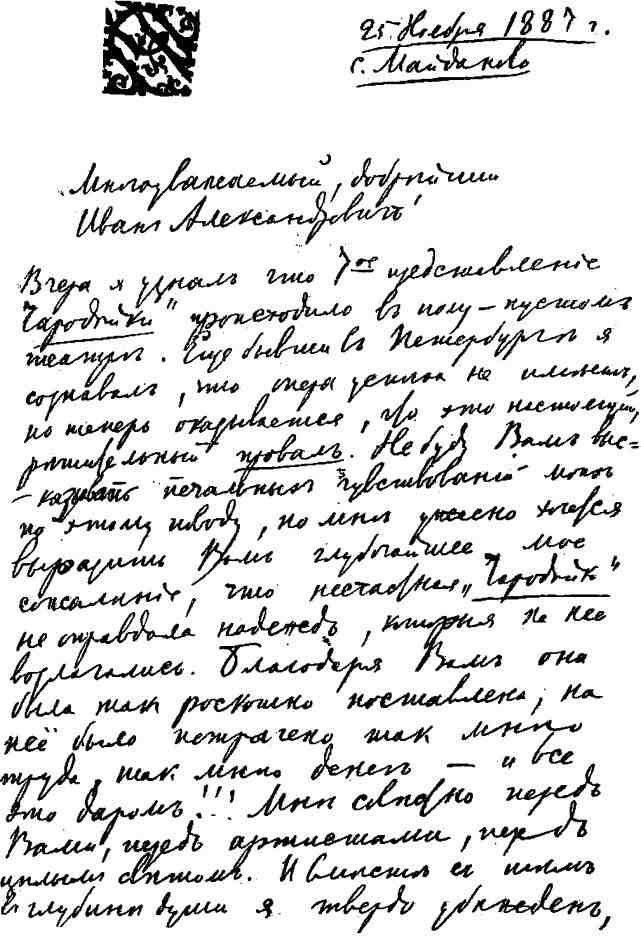 25 Ноября 1887 г.
с. Майданово
Многоуважаемый, добрейший
Иванъ Александровичъ!
Вчера я узналъ что 7ое представленіе
„Чародѣйки" происходило въ полу-пустомъ
театрѣ. Еще бывши въ Петербургѣ я
сознавалъ, что опера успѣха не имѣетъ,
но теперь оказывается, что это настоящій,
рѣшительный провалъ. Не буду Вамъ выс=
-казывать печальныхъ чувствованій моихъ
по этому поводу, но мнѣ ужасно хочется
выразить Вамъ глубочайшее мое
сожалѣніе, что несчастная „Чародѣйка"
не оправдала надеждъ, которыя на нее
возлагались. Благодаря Вамъ она
была такъ роскошно поставлена, на
неё было потрачено такъ много
труда, такъ много денегъ — и все
это даромъ!!! Мнѣ совѣстно передъ
Вами, передъ артистами, передъ
цѣлымъ свѣтомъ. И вмѣстѣ съ тѣмъ
въ глубинѣ души я твердо убѣжденъ,